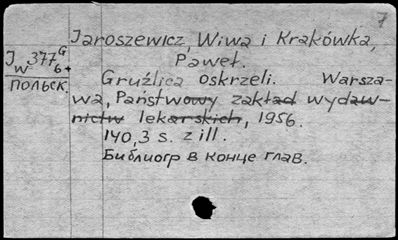 7
Jaroszewicz, Wiwa i Krakówka,
Paweł.
J 377 G
w 6+
польск.
Gruźlica oskrzeli. Warsza-
wa, Państwowy zakład wydaw-
nictw lekarskich, 1956.
140,3 s. z ill.
Библиогр в конце глав.